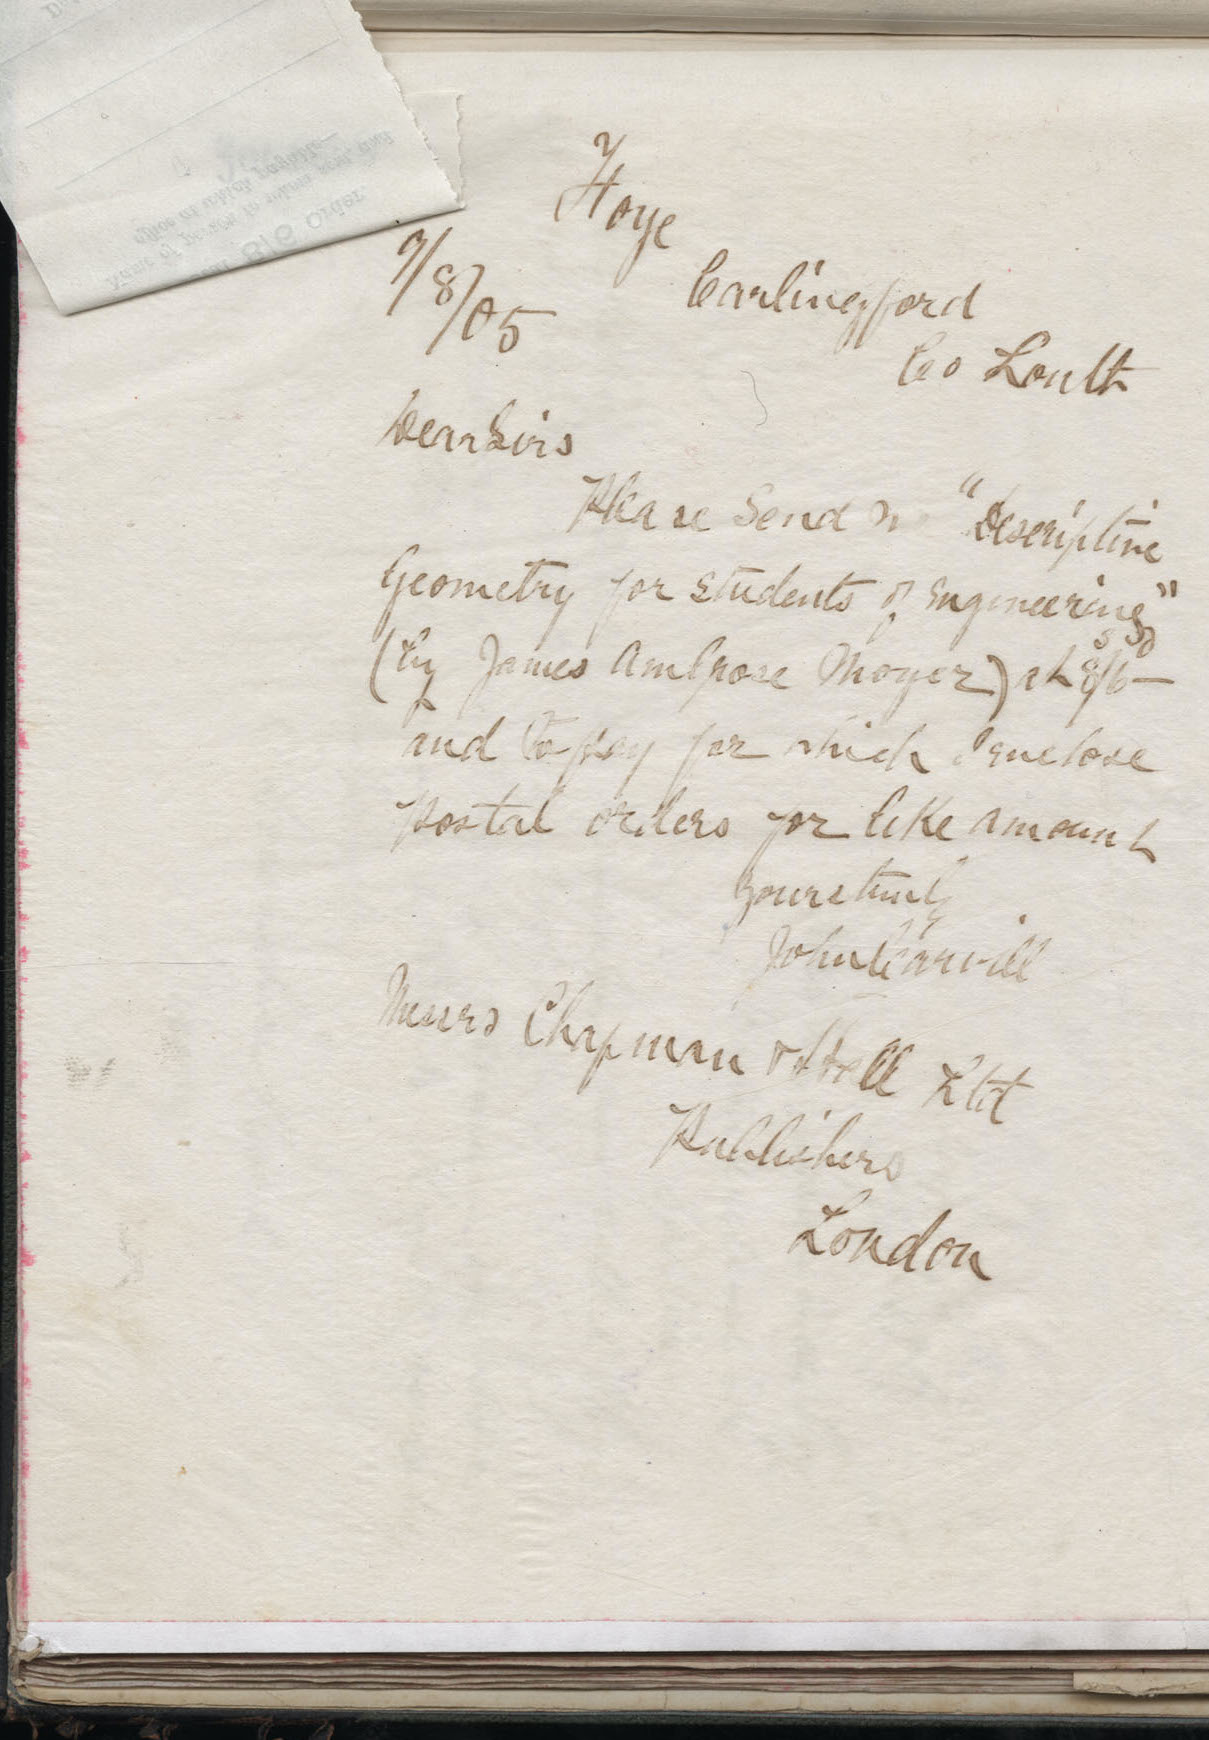 Foye
9/8/05
Carlingford
Co Louth
Dear Sirs
Please Send "Descriptive
Geometry for Students of Engineering"
(by James Ambrose Moyer) at 8s/6D
and to pay for which I enclose
postal orders for like amount
Yours truly
John Carvill
Messrs Chapman & Hall Ltd
Publishers
London